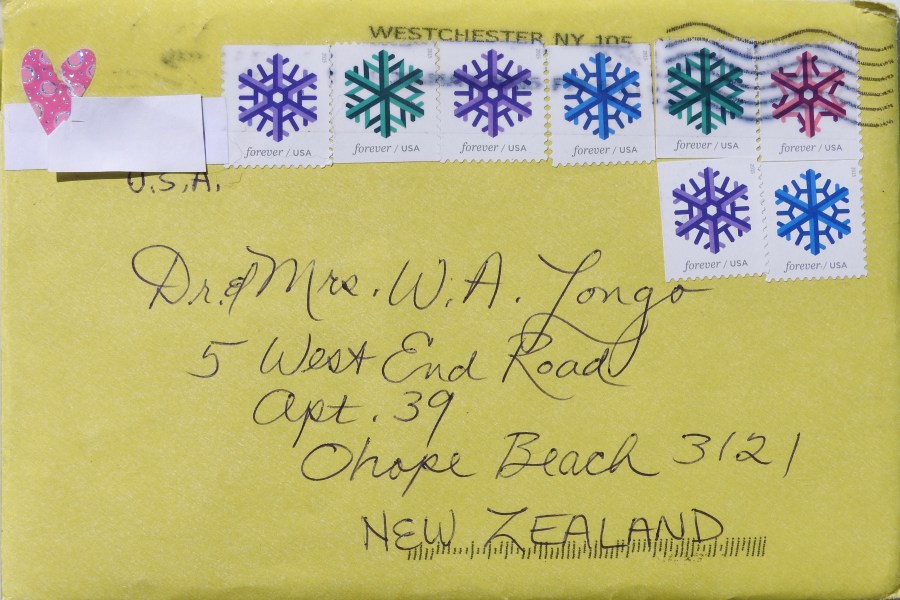 WESTCHESTER NY 105
forever / USA
forever / USA
forever / USA
forever / USA
forever / USA
forever / USA
forever / USA
forever / USA
U.S.A.
Dr. & Mrs. W. A. Longo
5 West End Road
Apt. 39
Ohope Beach 3121
NEW ZEALAND